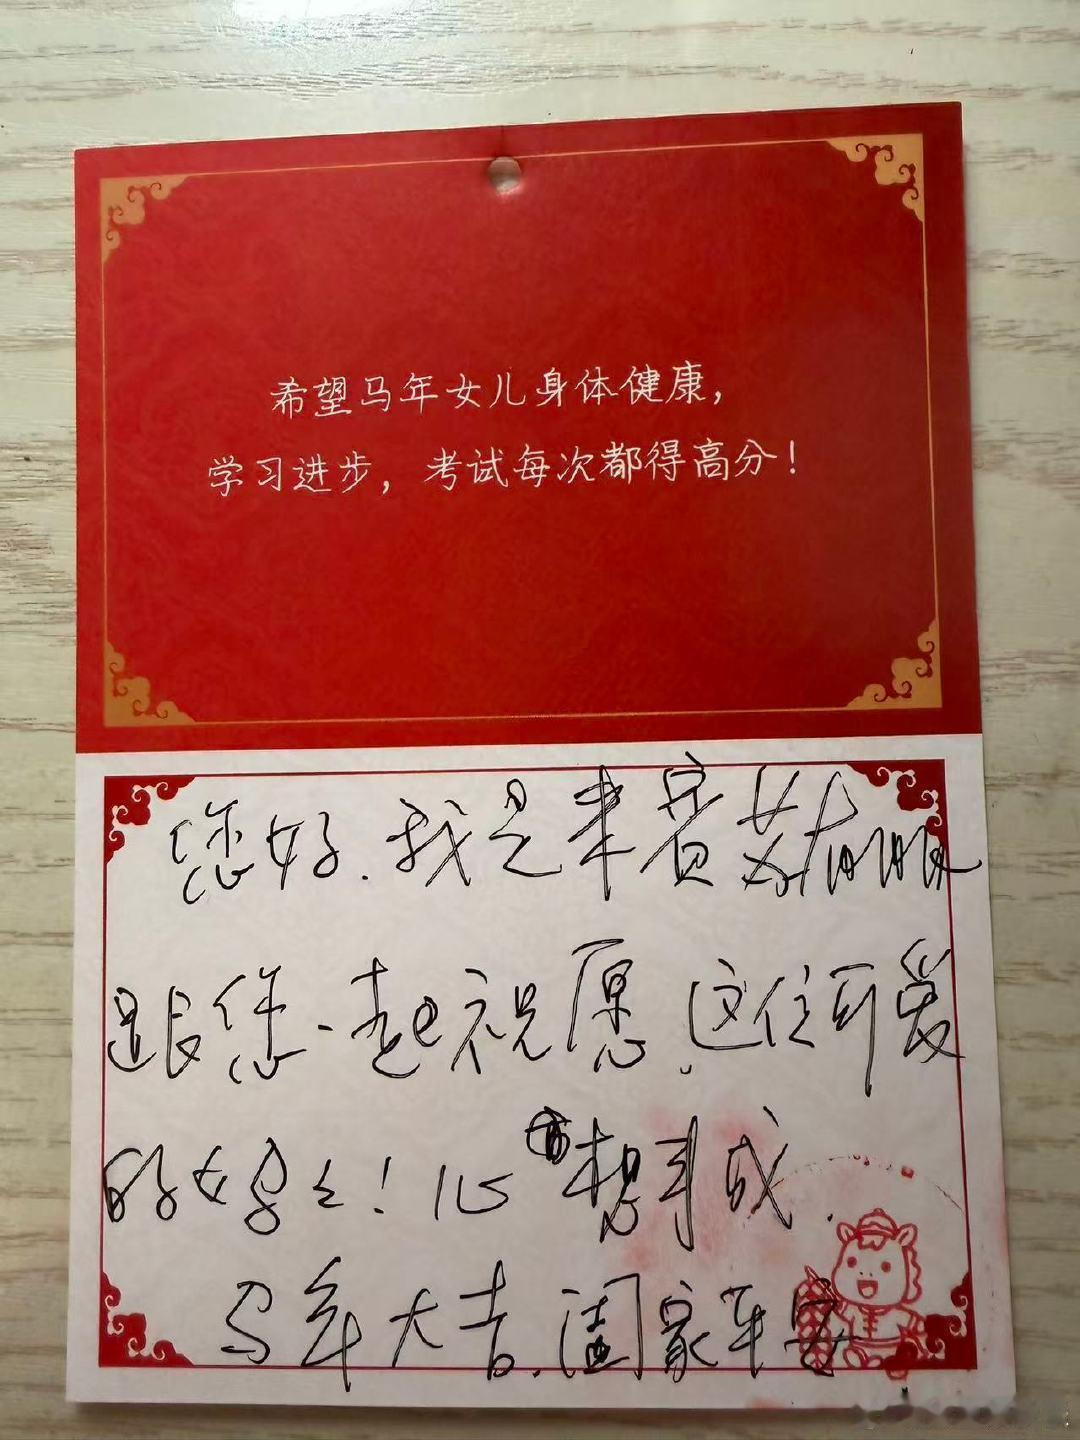 希望马年女儿身体健康，
学习进步，考试每次都得高分！
您好.我是来宾
跟您一起祝愿.这位可爱
的女! 心想事成.
马年大吉.阖家平安